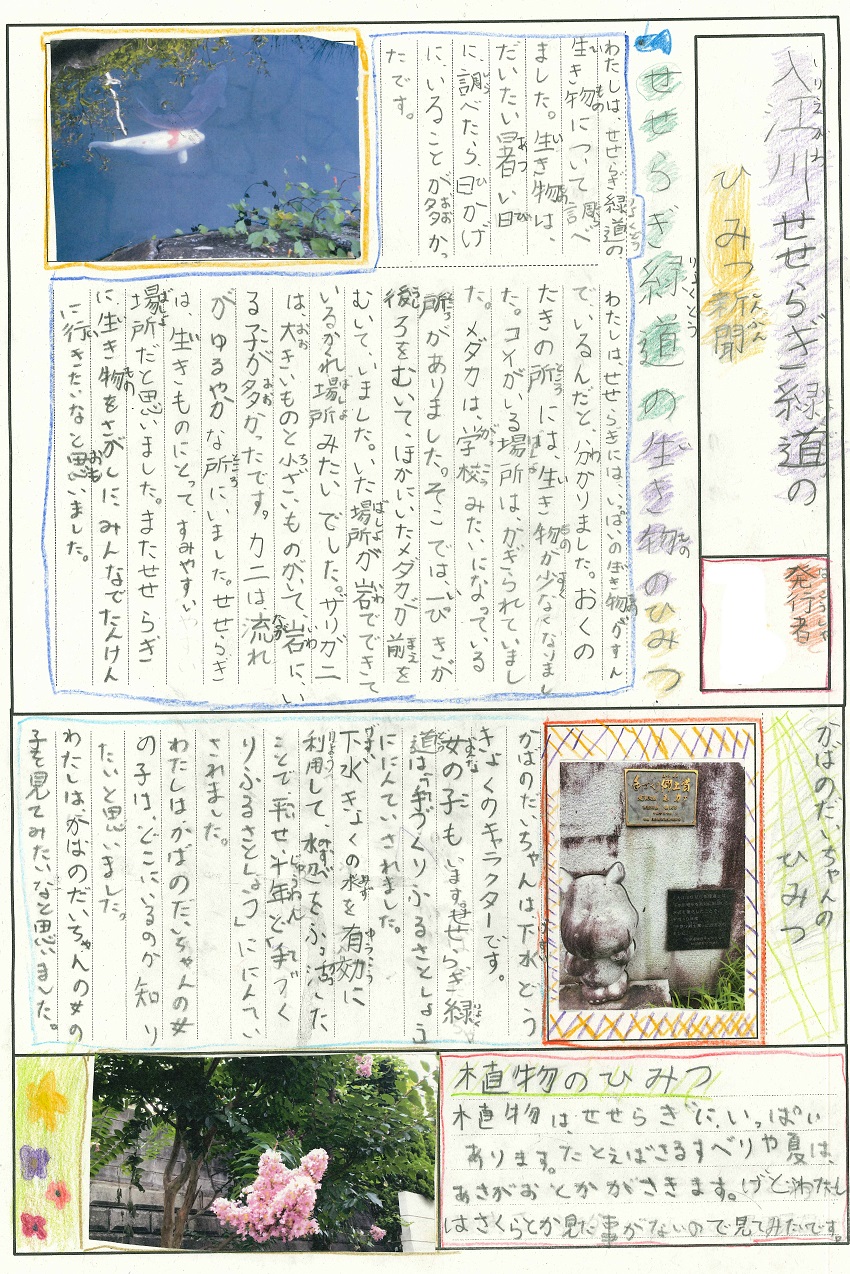 入江川せせらぎ緑道の
ひみつ新聞
発行者
せせらぎ緑道の生き物のひみつ
わたしは、せせらぎ緑道の
生き物について調べ
ました。生き物は、
だいたい暑い日
に、調べたら、日かげ
に、いることが多かっ
たです。
わたしは、せせらぎには、いっぱいの生き物がすん
でいるんだと、分かりました。おくの
たきの所には、生き物が少なくなりまし
た。コイがいる場所は、かぎられていまし
た。メダカは、学校みたいになっている
所がありました。そこでは、一ぴきが
後ろをむいて、ほかにいたメダカが前を
むいて、いました。いた場所が岩でできて
いるかくれ場所みたいでした。ザリガニ
は、大きいものと小さいものがいて、岩に、い
る子が多かったです。カニは流れ
がゆるやかな所にいました。せせらぎ
は、生きものにとって、すみやすい
場所だと思いました。またせせらぎ
に、生き物をさがしに、みんなでたんけん
に行きたいなと思いました。
かばのだいちゃんの
ひみつ
かばのだいちゃんは、下水どう
きょくのキャラクターです。
女の子もいます。せせらぎ緑
道は、「手づくりふるさとしょう
ににんていされました。
下水きょくの水を有効に
利用して、水辺をふっ活した
ことで、平せい十年ど「手づく
りふるさとしょう」ににんてい
されました。
わたしはかばのだいちゃんの女
の子は、どこにいるのか知り
たいと思いました。
わたしは、かばのだいちゃんの女の
子を見てみたいなと思いました。
植物のひみつ
植物は、せせらぎに、いっぱい
あります。たとえばさるすべりや夏は、
あさがおとかがさきます。けどわたし
はさくらとか見た事がないので見てみたいです。